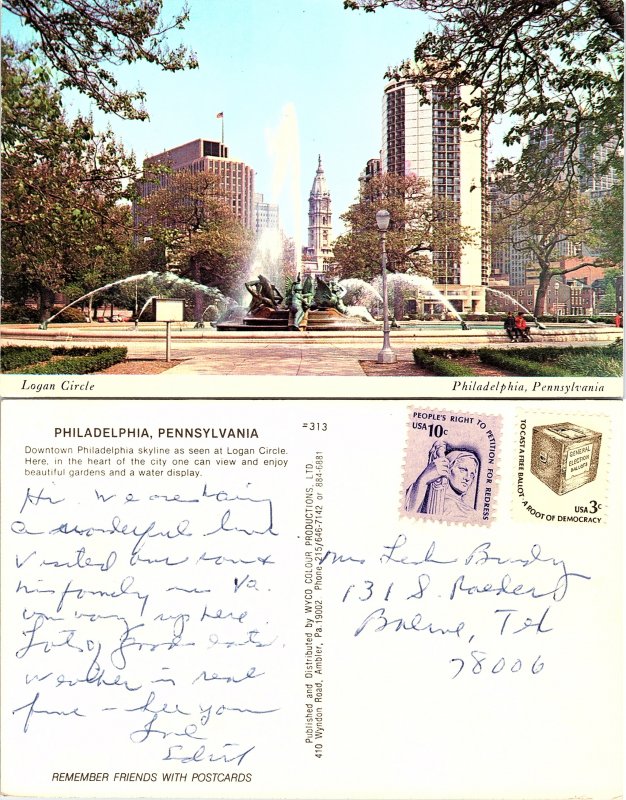 Logan Circle
Philadelphia, Pennsylvania
PHILADELPHIA, PENNSYLVANIA
Downtown Philadelphia skyline as seen at Logan Circle.
Here, in the heart of the city one can view and enjoy
beautiful gardens and a water display.
Hi. We are having
a wonderful time
Visited our son &
his family in Va.
on way up here.
Lots of good eats.
Weather is real
fine – See you
Love
Edith
REMEMBER FRIENDS WITH POSTCARDS
#313
Published and Distributed by WYCO COLOUR PRODUCTIONS, LTD.
410 Wyndon Road, Ambler, Pa.19002 Phone 215/646-7142 or 884-6881
PEOPLE'S RIGHT TO PETITION FOR REDRESS
USA 10c
TO CAST A FREE BALLOT–A ROOT OF DEMOCRACY
GENERAL
ELECTION
BALLOTS
USA 3c
Mrs
131 S.
Boerne, Tex
78006